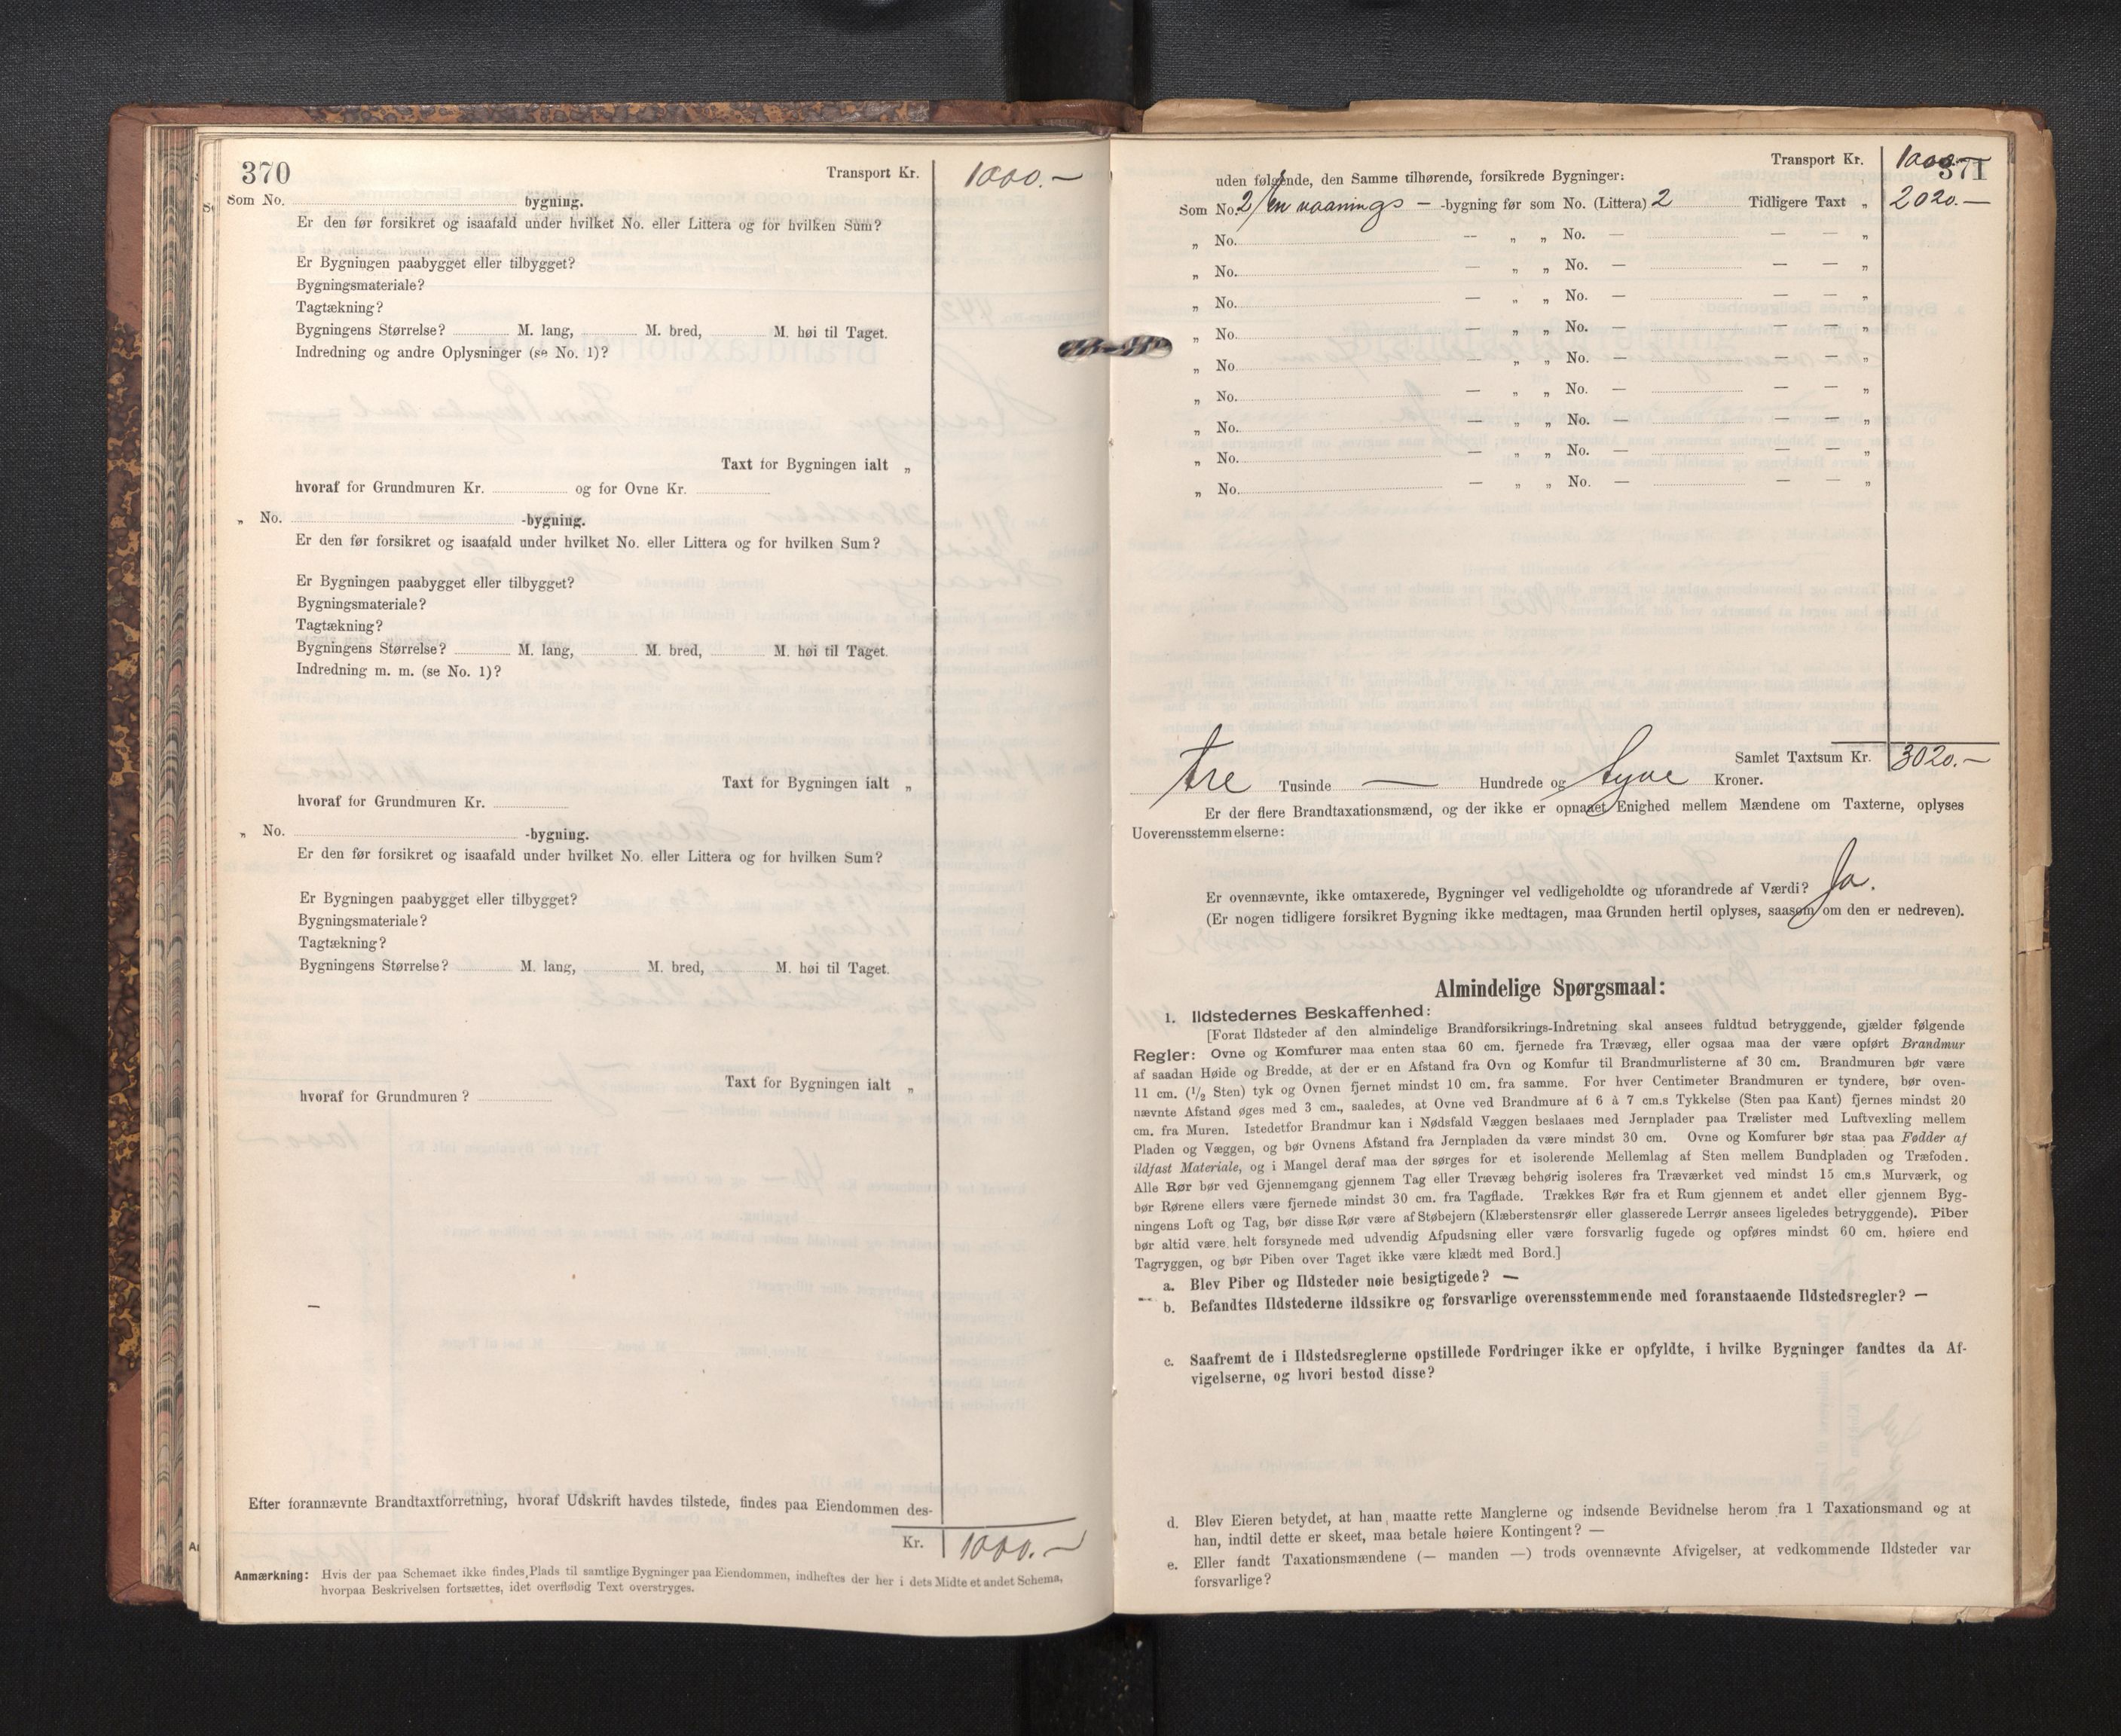 370
Transport Kr. 1000.—
Som No. bygning.
Er den før forsikret og isaafald under hvilket No. eller Littera og for hvilken Sum?
Er Bygningen paabygget eller tilbygget?
Bygningsmateriale?
Tagtækning?
Bygningens Størrelse? M. lang, M. bred, M. høi til Taget.
Indredning og andre Oplysninger (se No. 1)?
Taxt for Bygningen ialt „
hvoraf for Grundmuren Kr. og for Ovne Kr.
„ No. -bygning.
Er den før forsikret og isaafald under hvilket No. eller Littera og for hvilken Sum?
Er Bygningen paabygget eller tilbygget?
Bygningsmateriale?
Tagtækning?
Bygningens Størrelse? M. lang, M. bred, M. høi til Taget.
Indredning m. m. (se No. 1)?
Taxt for Bygningen ialt „
hvoraf for Grundmuren Kr.
„ No. -bygning.
Er den før forsikret og isaafald under hvilket No. eller Littera og for hvilken Sum?
Er Bygningen paabygget eller tilbygget?
Bygningsmateriale?
Tagtækning?
Bygningens Størrelse? M. lang, M. bred, M. høi til Taget.
Taxt for Bygningen ialt „
hvoraf for Grundmuren?
Efter forannævnte Brandtaxtforretning, hvoraf Udskrift havdes tilstede, findes paa Eiendommen des-
Kr. 1000.—
Anmærkning: Hvis der paa Schemaet ikke findes Plads til samtlige Bygninger paa Eiendommen, indheftes der her i dets Midte et andet Schema,
hvorpaa Beskrivelsen fortsættes, idet overflødig Text overstryges.
371
Transport Kr. 1000.—
uden følgende, den Samme tilhørende, forsikrede Bygninger:
Som No. 2/ En vaanings — -bygning før som No. (Littera) 2 Tidligere Taxt „ 2020.—
„ No. — „ „ No. — — — „
„ No. — „ „ No. — — — „
„ No. — „ „ No. — — — „
„ No. — „ „ No. — — — „
„ No. — „ „ No. — — — „
„ No. — „ „ No. — — — „
„ No. — „ „ No. — — — „
„ No. — „ „ No. — — — „
„ No. — „ „ No. — — — „
Samlet Taxtsum Kr. 3020.—
tre Tusinde — Hundrede og tyve Kroner.
Er der flere Brandtaxationsmænd, og der ikke er opnaaet Enighed mellem Mændene om Taxterne, oplyses
Uoverensstemmelserne:
Er ovennævnte, ikke omtaxerede, Bygninger vel vedligeholdte og uforandrede af Værdi? Ja.
(Er nogen tidligere forsikret Bygning ikke medtagen, maa Grunden hertil oplyses, saasom om den er nedreven).
Almindelige Spørgsmaal:
1. Ildstedernes Beskaffenhed:
[Forat Ildsteder af den almindelige Brandforsikrings-Indretning skal ansees fuldtud betryggende, gjælder følgende
Regler: Ovne og Komfurer maa enten staa 60 cm. fjernede fra Trævæg, eller ogsaa maa der være opført Brandmur
af saadan Høide og Bredde, at der er en Afstand fra Ovn og Komfur til Brandmurlisterne af 30 cm. Brandmuren bør være
11 cm. (1/2 Sten) tyk og Ovnen fjernet mindst 10 cm. fra samme. For hver Centimeter Brandmuren er tyndere, bør oven-
nævnte Afstand øges med 3 cm., saaledes, at Ovne ved Brandmure af 6 à 7 cm.s Tykkelse (Sten paa Kant) fjernes mindst 20
cm. fra Muren. Istedetfor Brandmur kan i Nødsfald Væggen beslaaes med Jernplader paa Trælister med Luftvexling mellem
Pladen og Væggen, og bør Ovnens Afstand fra Jernpladen da være mindst 30 cm. Ovne og Komfurer bør staa paa Fødder af
ildfast Materiale, og i Mangel deraf maa der sørges for et isolerende Mellemlag af Sten mellem Bundpladen og Træfoden.
Alle Rør bør ved Gjennemgang gjennem Tag eller Trævæg behørig isoleres fra Træværket ved mindst 15 cm.s Murværk, og
bør Rørene ellers være fjernede mindst 30 cm. fra Tagflade. Trækkes Rør fra et Rum gjennem et andet eller gjennem Byg-
ningens Loft og Tag, bør disse Rør være af Støbejern (Klæberstensrør eller glasserede Lerrør ansees ligeledes betryggende). Piber
bør altid være helt forsynede med udvendig Afpudsning eller være forsvarlig fugede og opføres mindst 60 cm. høiere end
Tagryggen, og bør Piben over Taget ikke være klædt med Bord.]
a. Blev Piber og Ildsteder nøie besigtigede? —
b. Befandtes Ildstederne ildssikre og forsvarlige overensstemmende med foranstaaende Ildstedsregler? —
c. Saafremt de i Ildstedsreglerne opstillede Fordringer ikke er opfyldte, i hvilke Bygninger fandtes da Af-
vigelserne, og hvori bestod disse?
d. Blev Eieren betydet, at han maatte rette Manglerne og indsende Bevidnelse herom fra 1 Taxationsmand og at
han, indtil dette er skeet, maa betale høiere Kontingent? —
e. Eller fandt Taxationsmændene (— manden —) trods ovennævnte Afvigelser, at vedkommende Ildsteder var
forsvarlige?